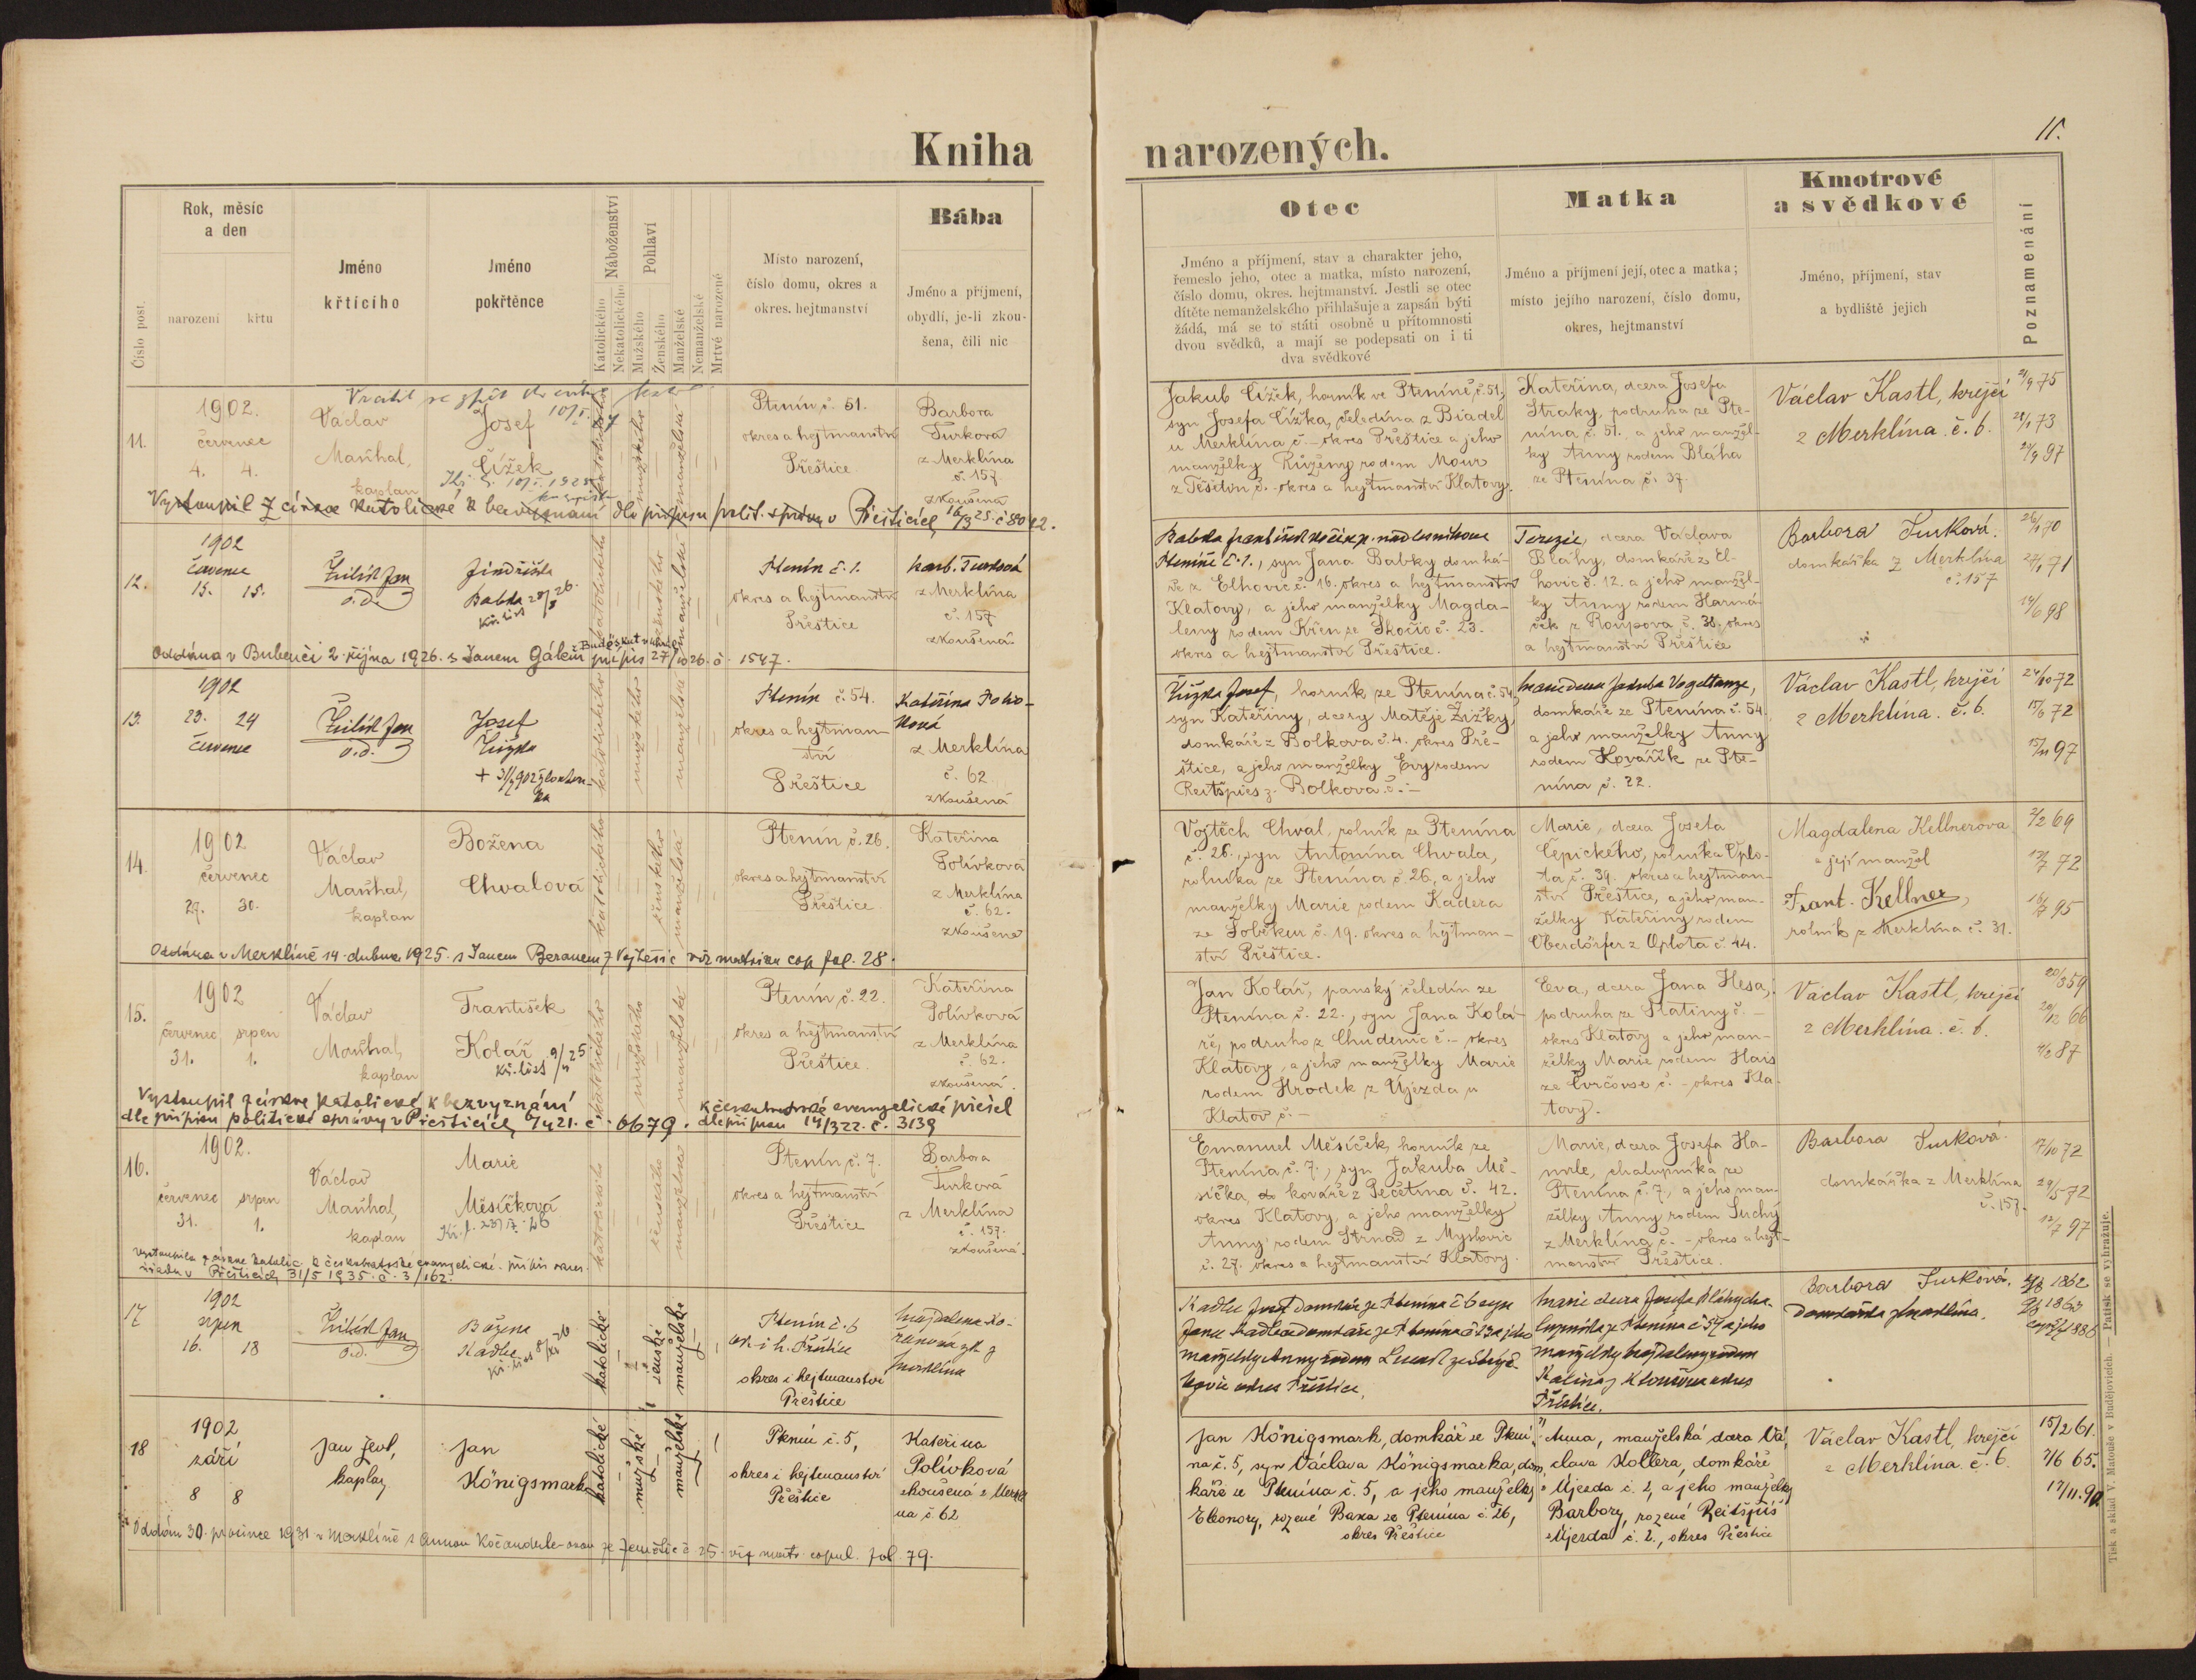 Kniha
narozených.
11.
Číslo post.
Rok, měsíc
a den
narození
křtu
Jméno
křtícího
Jméno
pokřtěnce
Náboženství
Katolického
Nekatolického
Pohlaví
Mužského
Ženského
Manželské
Nemanželské
Mrtvě narozené
Místo narození,
číslo domu, okres a
okres. hejtmanství
Bába
Jméno a příjmení,
obydlí, je-li zkou-
šena, čili nic
Otec
Jméno a příjmení, stav a charakter jeho,
řemeslo jeho, otec a matka, místo narození,
číslo domu, okres. hejtmanství. Jestli se otec
dítěte nemanželského přihlašuje a zapsán býti
žádá, má se to státi osobně u přítomnosti
dvou svědků, a mají se podepsati on i ti
dva svědkové
Matka
Jméno a příjmení její, otec a matka;
místo jejího narození, číslo domu,
okres, hejtmanství
Kmotrové
a svědkové
Jméno, příjmení, stav
a bydliště jejich
Poznamenání
11.
1902.
červenec
4. 4.
Václav
Maršhal,
kaplan
Josef
Čížek
katolického
mužského
manželské
Ptenín č. 51.
okres a hejtmanství
Přeštice
Barbora
Turková
z Merklína
č. 157.
zkoušená
Jakub Čížek, horník ve Pteníně č. 51,
syn Josefa Čížka, čeledína z Biadel
u Merklína č. - okres Přeštice a jeho
manželky Růženy rodem Mour
z Těšetin č. - okres a hejtmanství Klatovy.
Kateřina, dcera Josefa
Straky, podruha ze Pte-
nína č. 51. a jeho manžel-
ky Anny rodem Bláha
ze Ptenína č. 37.
Václav Kastl, krejčí
z Merklína č. 6.
21/9 75
28/1 73
21/9 97
Vystoupil z církve katolické k bezvyznání dle přípisu polit. správy v Přešticích 16/3 25. č 8042.
12.
1902
červenec
15. 15.
Žilík Jan
o.d.
Jindřiška
Babka 28/8 26.
kř. list
katolického
ženského
manželské
Ptenín č. 1.
okres a hejtmanství
Přeštice
Barb. Turková
z Merklína
č. 157
zkoušená
Babka František kočí p. nadlesního ve
Pteníně č. 1., syn Jana Babky domká-
ře z Elhovic č. 16. okres a hejtmanství
Klatovy, a jeho manželky Magda-
leny rodem Křen ze Skočic č. 23.
okres a hejtmanství Přeštice.
Terezie, dcera Václava
Bláhy, domkáře z El-
hovic č. 12. a jeho manžel-
ky Anny rodem Harmá-
ček z Roupova č. 38. okres
a hejtmanství Přeštice
Barbora Turková.
domkářka z Merklína
č. 157
26/1 70
24/1 71
14/6 98
Oddána v Bubenči 2. října 1926. s Janem Gálem přípis 27/10 26. č. 1547.
13.
1902
23. 24
červenec
Žilík Jan
o.d.
Josef
Žižka
katolického
mužského
manželské
Ptenín č. 54.
okres a hejtman-
ství
Přeštice
Kateřina Polív-
ková
z Merklína
č. 62
zkoušená
Žižka Josef, horník ze Ptenína č. 54
syn Kateřiny, dcery Matěje Žižky,
domkáře z Bolkova č. 4. okres Pře-
štice, a jeho manželky Evy rodem
Reitšpies z. Bolkova č. -
Marie dcera Jakuba Vogeltanze,
domkáře ze Ptenína č. 54.
a jeho manželky Anny
rodem Kovářík ze Pte-
nína č. 22.
Václav Kastl, krejčí
z Merklína. č. 6.
24/10 72
15/6 72
15/11 97
14.
1902
červenec
29. 30.
Václav
Maršhal,
kaplan
Božena
Chvalová
katolického
ženského
manželské
Ptenín č. 26.
okres a hejtmanství
Přeštice
Kateřina
Polívková
z Merklína
č. 62.
zkoušená
Vojtěch Chval, rolník ze Ptenína
č. 26., syn Antonína Chvala,
rolníka ze Ptenína č. 26, a jeho
manželky Marie rodem Kadera
ze Soběkur č. 19. okres a hejtman-
ství Přeštice.
Marie, dcera Josefa
Čepického, rolníka Oplo-
ta č. 39. okres a hejtman-
ství Přeštice, a jeho man-
želky Kateřiny rodem
Oberdörfer z Oplota č. 44.
Magdalena Kellnerova
a její manžel
Frant. Kellner,
rolník z Merklína č. 31.
2/2 69
12/7 72
16/7 95
Oddána v Merklíně 14. dubna 1925. s Janem Beranem z Vojtěšic viz matrika cop fol. 28.
15.
1902
červenec srpen
31. 1.
Václav
Maršhal,
kaplan
František
Kolář
kř. list 9/11 25
katolického
mužského
manželské
Ptenín č. 22.
okres a hejtmanství
Přeštice.
Kateřina
Polívková
z Merklína
č. 62.
zkoušená.
Jan Kolář, panský čeledín ze
Ptenína č. 22., syn Jana Kolá-
ře, podruha z Chudenic č. - okres
Klatovy, a jeho manželky Marie
rodem Hrodek z Újezda u
Klatov č. -
Eva, dcera Jana Hesa,
podruha ze Slatiny č. -
okres Klatovy a jeho man-
želky Marie rodem Hais
ze Čvrčovse č. - okres Kla-
tovy.
Václav Kastl, krejčí
z Merklína. č. 6.
20/3 59
20/12 66
4/2 87
Vystoupil z církve katolické k bezvyznání
dle přípisu politické správy v Přešticích 6/4 21. č. 6679.
k českobratrské evangelické přešel
dle přípisu 14/3 22. č. 3139
16.
1902.
červenec srpen
31. 1.
Václav
Maršhal,
kaplan
Marie
Měsíčková
katolického
ženského
manželské
Ptenín č. 7.
okres a hejtmanství
Přeštice
Barbora
Turková
z Merklína
č. 157.
zkoušená.
Emanuel Měsíček, horník ze
Ptenína č. 7., syn Jakuba Mě-
síčka, kováře z Pečetína č. 42.
okres Klatovy a jeho manželky
Anny rodem Strnad z Myslovic
č. 27. okres a hejtmanství Klatovy.
Marie, dcera Josefa Ha-
mrle, chalupníka ze
Ptenína č. 7, a jeho man-
želky Anny rodem Suchý
z Merklína č. - okres a hejt-
manství Přeštice.
Barbora Turková.
domkářka z Merklína
č. 157.
17/10 72
29/5 72
12/7 97
Vystoupila z církve katolic. k českobratrské evangelické. přípis okres.
úřadu v Přešticích 31/5 1935. č. 3/162.
17
1902
srpen
16. 18
Žilík Jan
o.d.
Božena
Kadlec
katolické
ženské
manželské
Ptenín č. 6
ok. i h. Přeštice
okres i hejtmanství
Přeštice
Magdalena Ko-
řanová zk z
Merklína
Kadlec Josef domkář ze Ptenína č 6 syn
Jana Kadlece domkáře ze Ptenína č 13 a jeho
manželky Anny rodem
okres Přeštice,
Marie dcera Josefa Bláhy cha-
lupníka ze Ptenína č 57 a jeho
manželky Magdaleny rodem
Kalina z okres
Přeštice.
Barbora Turková.
domkářka z Merklína.
18
1902
září
8 8
Jan
kaplan
Jan
Königsmark
katolické
mužské
manželské
Ptenín č. 5,
okres i hejtmanství
Přeštice
Kateřina
Polívková
zkoušená z Merklí
na č 62
Jan Königsmark, domkář ze Ptení-
na č. 5, syn Václava Königsmarka, dom-
káře ze Ptenína č. 5, a jeho manželky
Eleonory, rozené Baxa ze Ptenína č. 26,
okres Přeštice
Anna, manželská dcera Vá-
clava Kollera, domkáře
z Újezda č. 2, a jeho manželky
Barbory, rozené Reitšpiis
z Újezda č. 2., okres Přeštice
Václav Kastl, krejčí
z Merklína č. 6
15/2 61.
7/6 65.
17/11. 90.
Oddán 30. prosince 1931 v Merklíně s Annou Kočandrle-ovou ze Zemětic č 25. viz matr. copul. fol. 79.
Tisk a sklad V. Matouše v Budějovicích. — Patisk se vyhražuje.